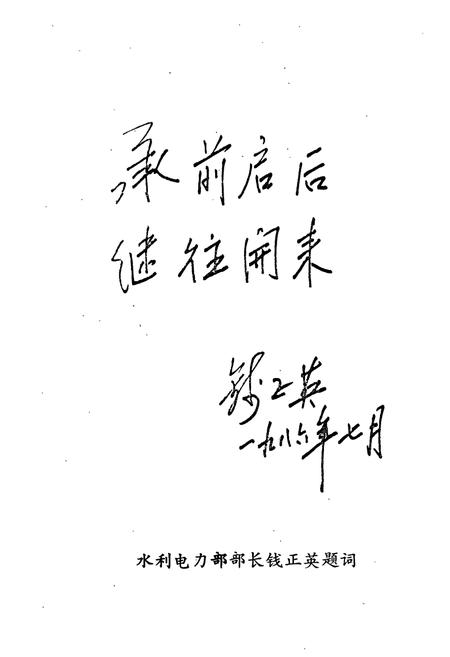 承前启后
继往开来
钱正英
一九八六年七月
水利电力部部长钱正英题词